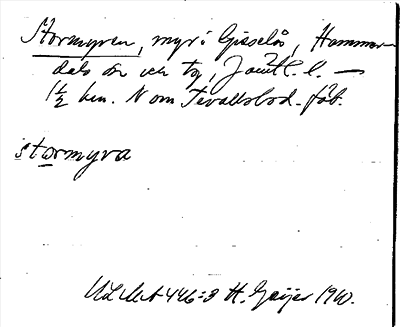 Stormyren, myr i Gisselås, Hammer-
dals sn och tg, Jämtl. l. —
1 1/2 km. N om Tevallsbod. fäb.
stormyva
ULMA 446:3 H. Geijer 1910.